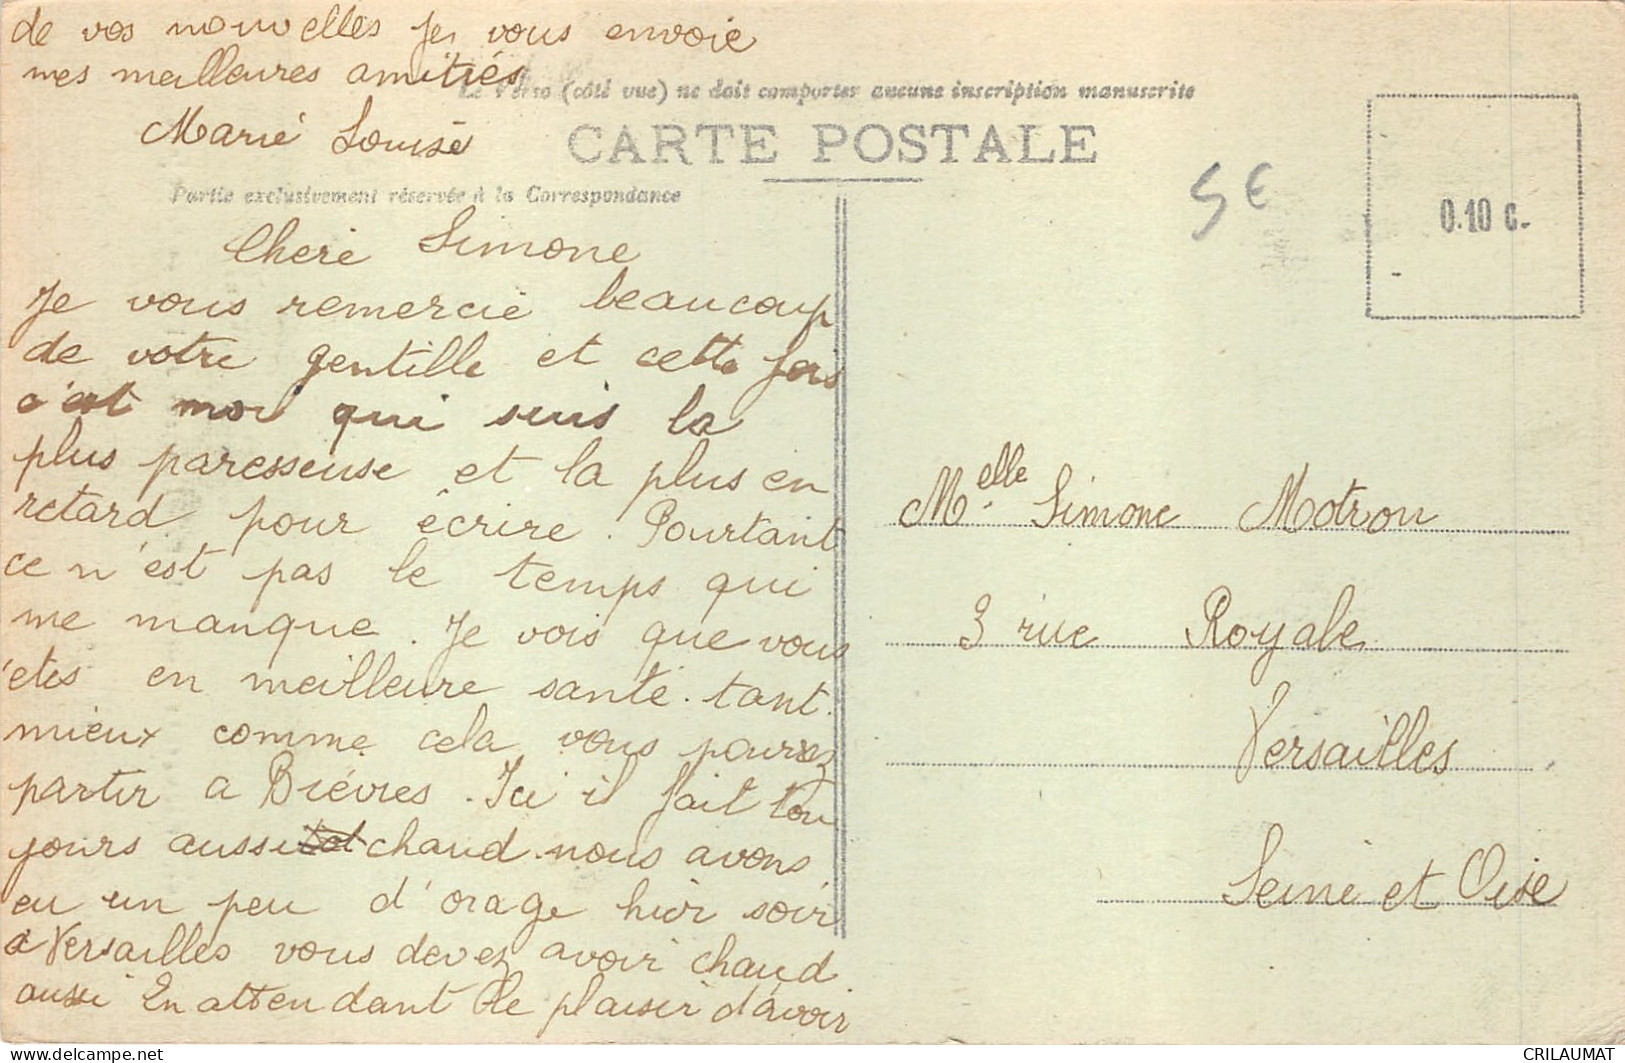 de vos nouvelles je vous envoie
mes meilleures amitiés
Le Verso (côté vue) ne doit comporter aucune inscription manuscrite
Marie Louise
CARTE POSTALE
Partie exclusivement réservée à la Correspondance
5 €
0.10 c.
Chere Simone
Je vous remercie beaucoup
de votre gentille et cette fois
c'est moi qui suis la
plus paresseuse et la plus en
retard pour écrire. Pourtant
ce n'est pas le temps qui
me manque. Je vois que vous
êtes en meilleure santé. tant
mieux comme cela vous pourrez
partir a Bièvres. Ici il fait tou
jours aussi chaud nous avons
eu un peu d'orage hier soir
a Versailles vous devez avoir chaud
aussi En attendant le plaisir d'avoir
Melle Simone Motron
3 rue Royale
Versailles
Seine et Oise
CRILAUMAT